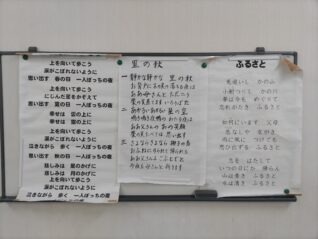 上を向いて歩こう
涙がこぼれないように
思い出す 春の日 一人ぼっちの夜
上を向いて歩こう
にじんだ星をかぞえて
思い出す 夏の日 一人ぼっちの夜
幸せは 雲の上に
幸せは 空の上に
上を向いて歩こう
涙がこぼれないように
泣きながら 歩く 一人ぼっちの夜
思い出す 秋の日 一人ぼっちの夜
悲しみは 星のかげに
悲しみは 月のかげに
上を向いて歩こう
涙がこぼれないように
泣きながら 歩く 一人ぼっちの夜
里の秋
一 静かな静かな 里の秋
お背戸に木の実の落ちる夜は
ああ母さんとただ二人
栗の実 煮てます いろりばた
二 あかるいあかるい 星の空
鳴き鳴き夜鴨の 渡る夜は
ああ父さんの あの笑顔
栗の実 たべては 思い出す
三 さよならさよなら 椰子の島
お舟にゆられて 帰られる
ああ父さんよ
今夜も 母さんと
ふるさと
兎追いし かの山
小鮒つりし かの川
夢は今も めぐりて
忘れがたき ふるさと
如何にいます 父母
恙なしや 友がき
雨に風に つけても
思い出ずる ふるさと
志を はたして
いつの日にか 帰らん
山は青き ふるさと
水は清き ふるさと